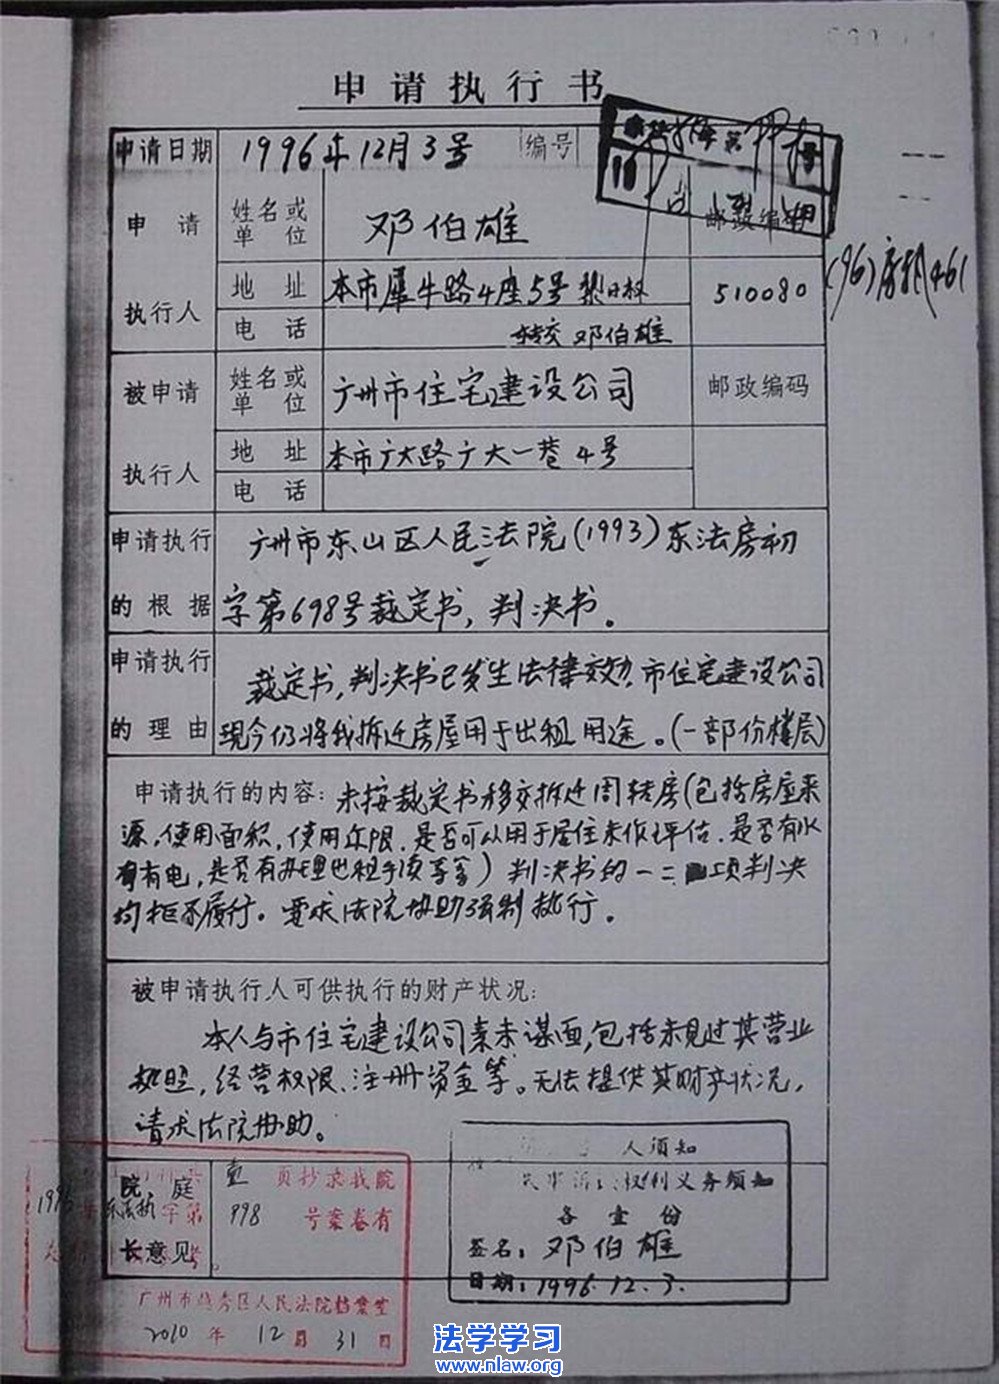 申请执行书
申请日期 1996年12月3号 编号
申请执行人 姓名或单位 邓伯雄 邮政编码
地址 本市犀牛路4座5号 510080 (96)房执461
电话 转交邓伯雄
被申请执行人 姓名或单位 广州市住宅建设公司 邮政编码
地址 本市广大路广大一巷4号
电话
申请执行的根据 广州市东山区人民法院(1993)东法房初
字第698号裁定书,判决书。
申请执行的理由 裁定书,判决书已发生法律效力,市住宅建设公司
现今仍将我拆迁房屋用于出租用途。(一部份楼层)
申请执行的内容:未按裁定书移交拆迁周转房(包括房屋来
源,使用面积,使用年限,是否可以用于居住未作评估,是否有水
有电,是否有办理出租手续等等)判决书的一二项判决
均拒不履行。要求法院协助强制执行。
被申请执行人可供执行的财产状况:
本人与市住宅建设公司素未谋面,包括未见过其营业
执照,经营权限、注册资金等。无法提供其财产状况,
请求法院协助。
人须知
权利义务须知
各壹份
签名:邓伯雄
日期:1996.12.3.
院庭长意见
页抄录我院
998 号案卷有
广州市越秀区人民法院档案室
2010年12月31日
法学学习
www.nlaw.org